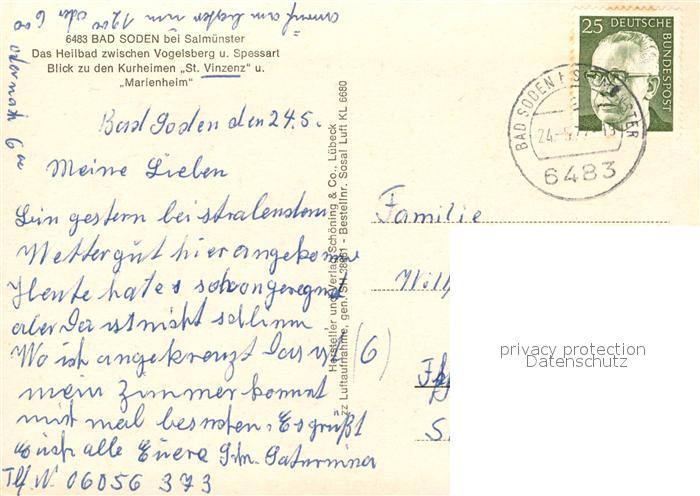 6483 BAD SODEN bei Salmünster
Das Heilbad zwischen Vogelsberg u. Spessart
Blick zu den Kurheimen „St. Vinzenz" u.
„Marienheim"
Bad Soden den 24.5.
Meine Lieben
Bin gestern bei stralendem
Wetter gut hier angekomme
Heute hat es schon geregnet
aber das ist nicht schlimm
Wo ich angekreuzt das ist (6)
mein Zimmer kommt
mich mal besuchen. Es grüßt
Euch alle Euere Schw. Saturnina
Tlf. N 06056 373
anruf am besten um 12 00 oder 6 00
Hersteller und Verlag Schöning & Co., Lübeck
Luftaufnahme, gen. SH 28 - Bestellnr. Sosal Luft KL 6680
25 DEUTSCHE BUNDESPOST
BAD SODEN
24.-5.77
6483
Familie
privacy protection
Datenschutz